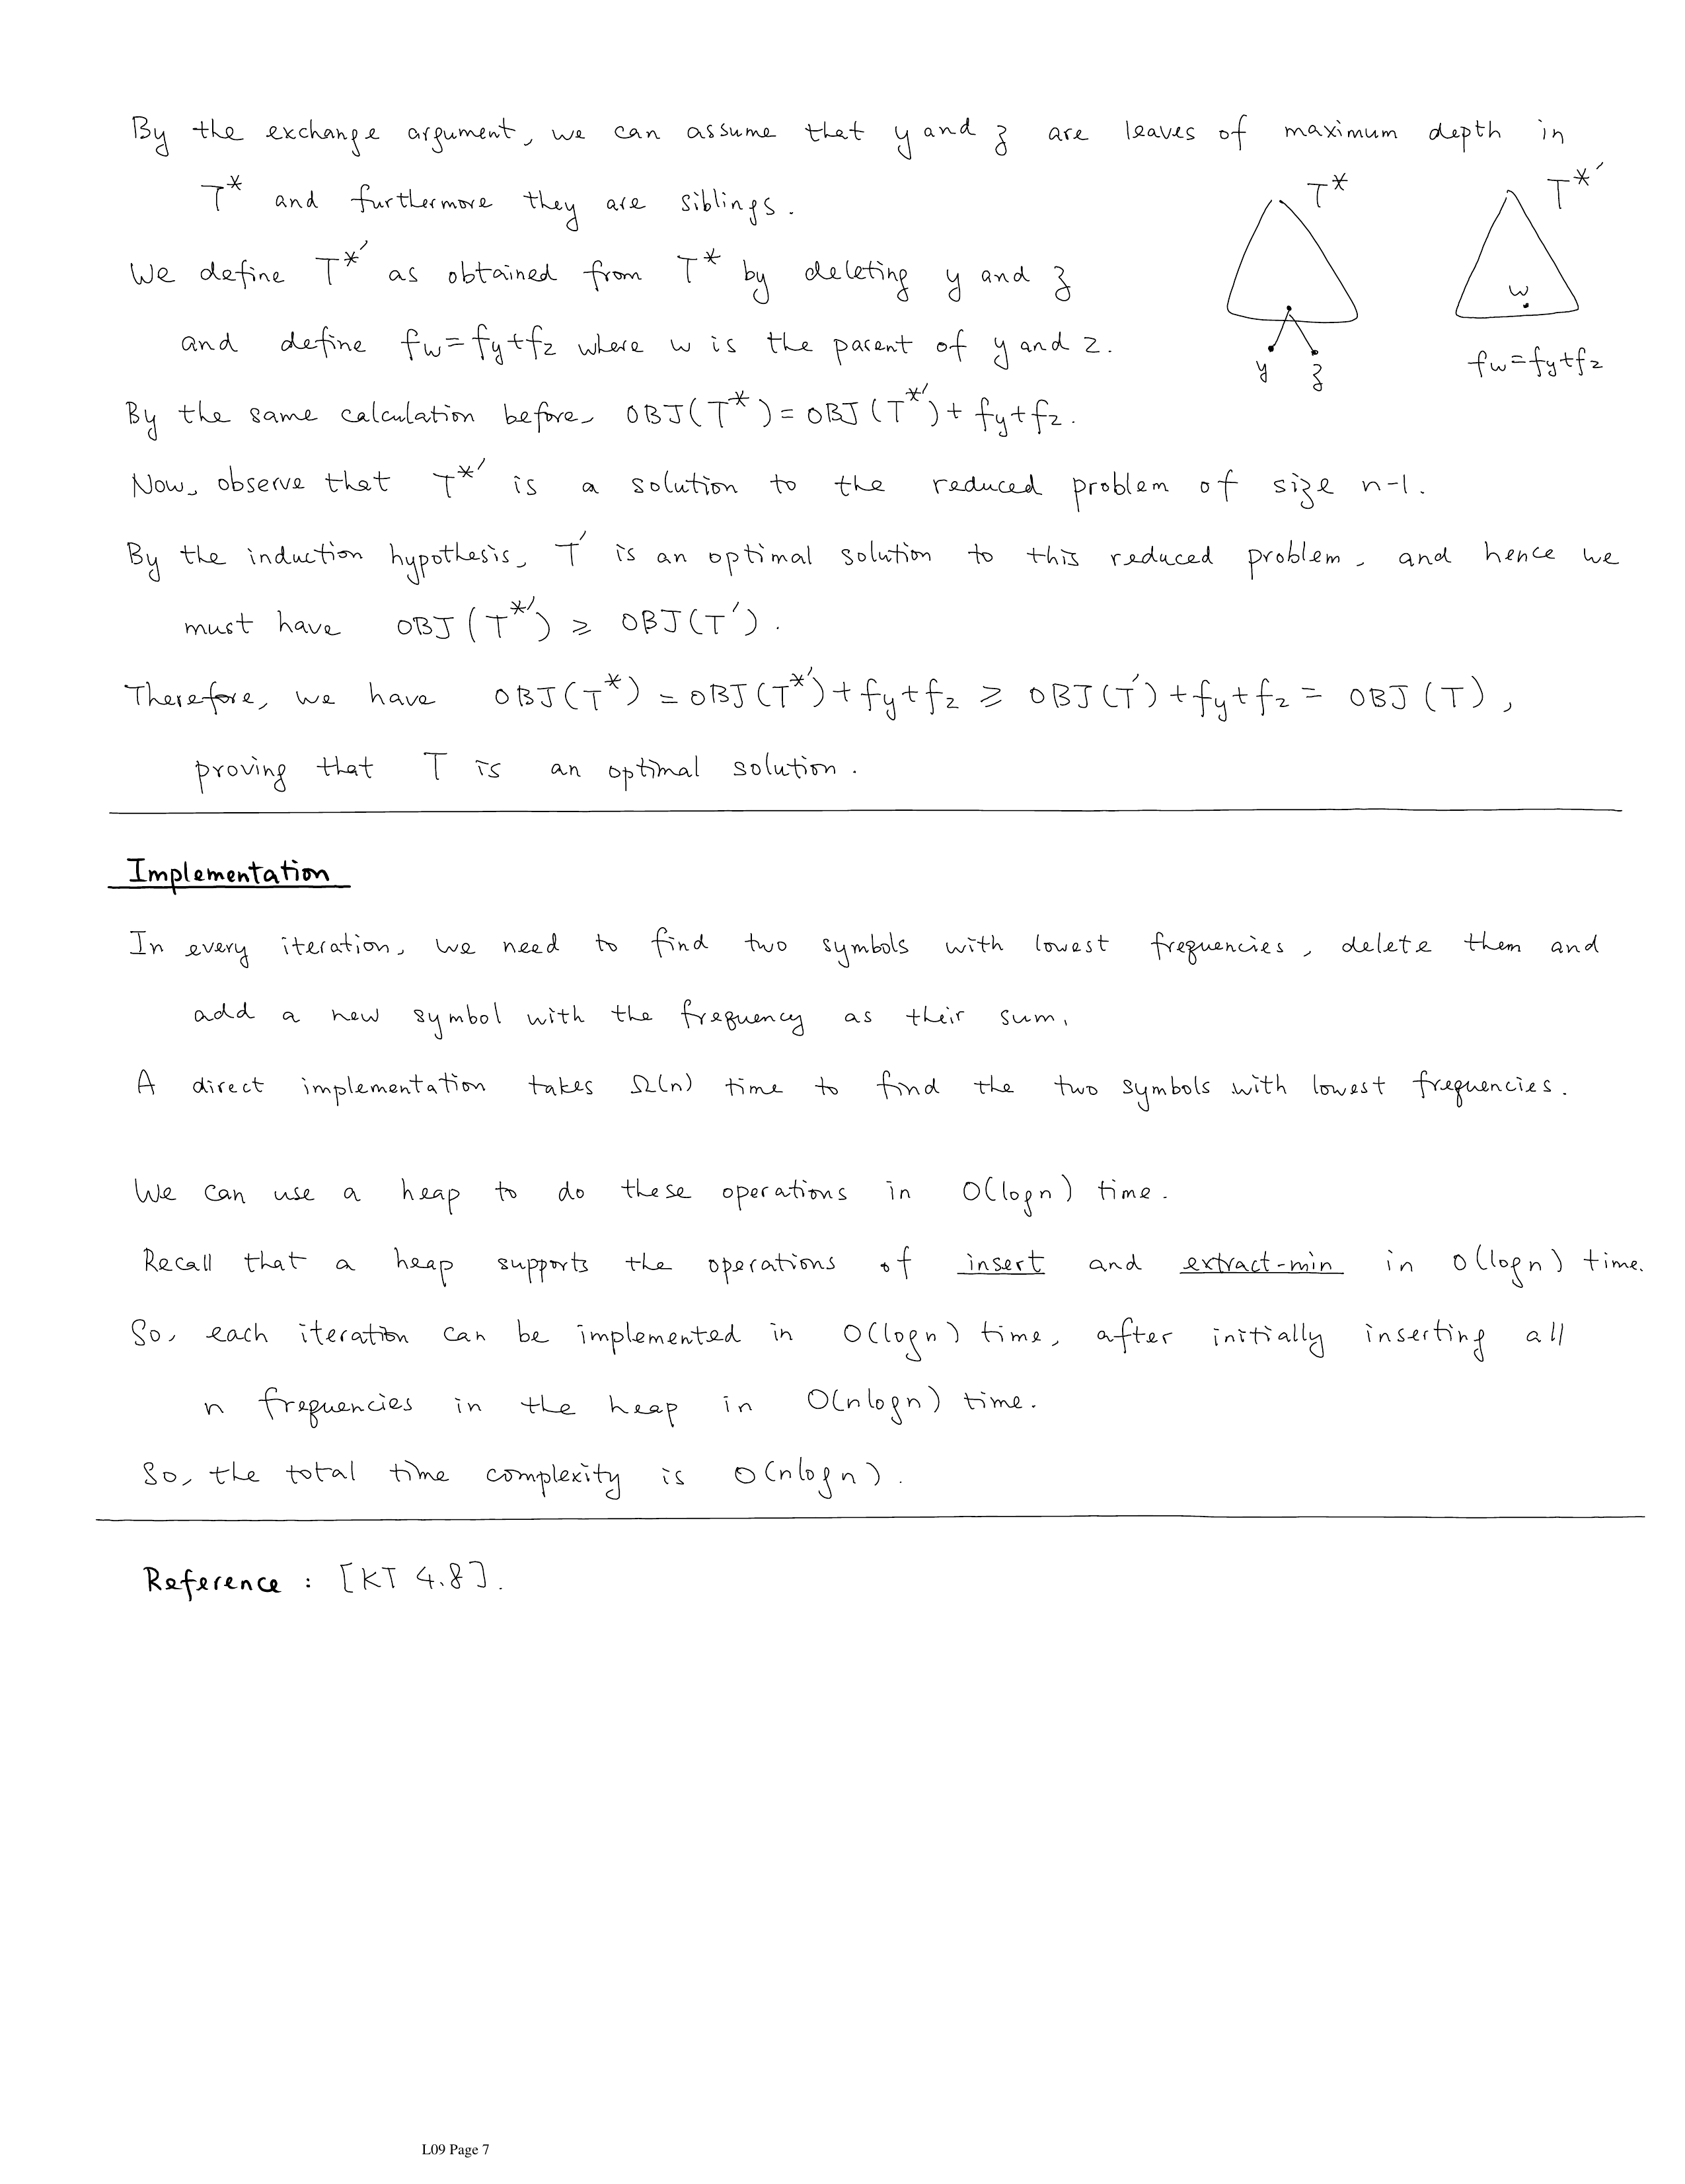 By the exchange argument, we can assume that y and z are leaves of maximum depth in
T* and furthermore they are siblings.
T*
T*'
We define T*' as obtained from T* by deleting y and z
w
and define fw=fy+fz where w is the parent of y and z.
y
z
fw=fy+fz
By the same calculation before, OBJ(T*) = OBJ(T*') + fy+fz.
Now, observe that T*' is a solution to the reduced problem of size n-1.
By the induction hypothesis, T' is an optimal solution to this reduced problem, and hence we
must have OBJ(T*') ≥ OBJ(T').
Therefore, we have OBJ(T*) = OBJ(T*') + fy+fz ≥ OBJ(T') + fy+fz = OBJ(T),
proving that T is an optimal solution.
Implementation
In every iteration, we need to find two symbols with lowest frequencies, delete them and
add a new symbol with the frequency as their sum.
A direct implementation takes Ω(n) time to find the two symbols with lowest frequencies.
We can use a heap to do these operations in O(logn) time.
Recall that a heap supports the operations of insert and extract-min in O(logn) time.
So, each iteration can be implemented in O(logn) time, after initially inserting all
n frequencies in the heap in O(nlogn) time.
So, the total time complexity is O(nlogn).
Reference : [KT 4.8].
L09 Page 7